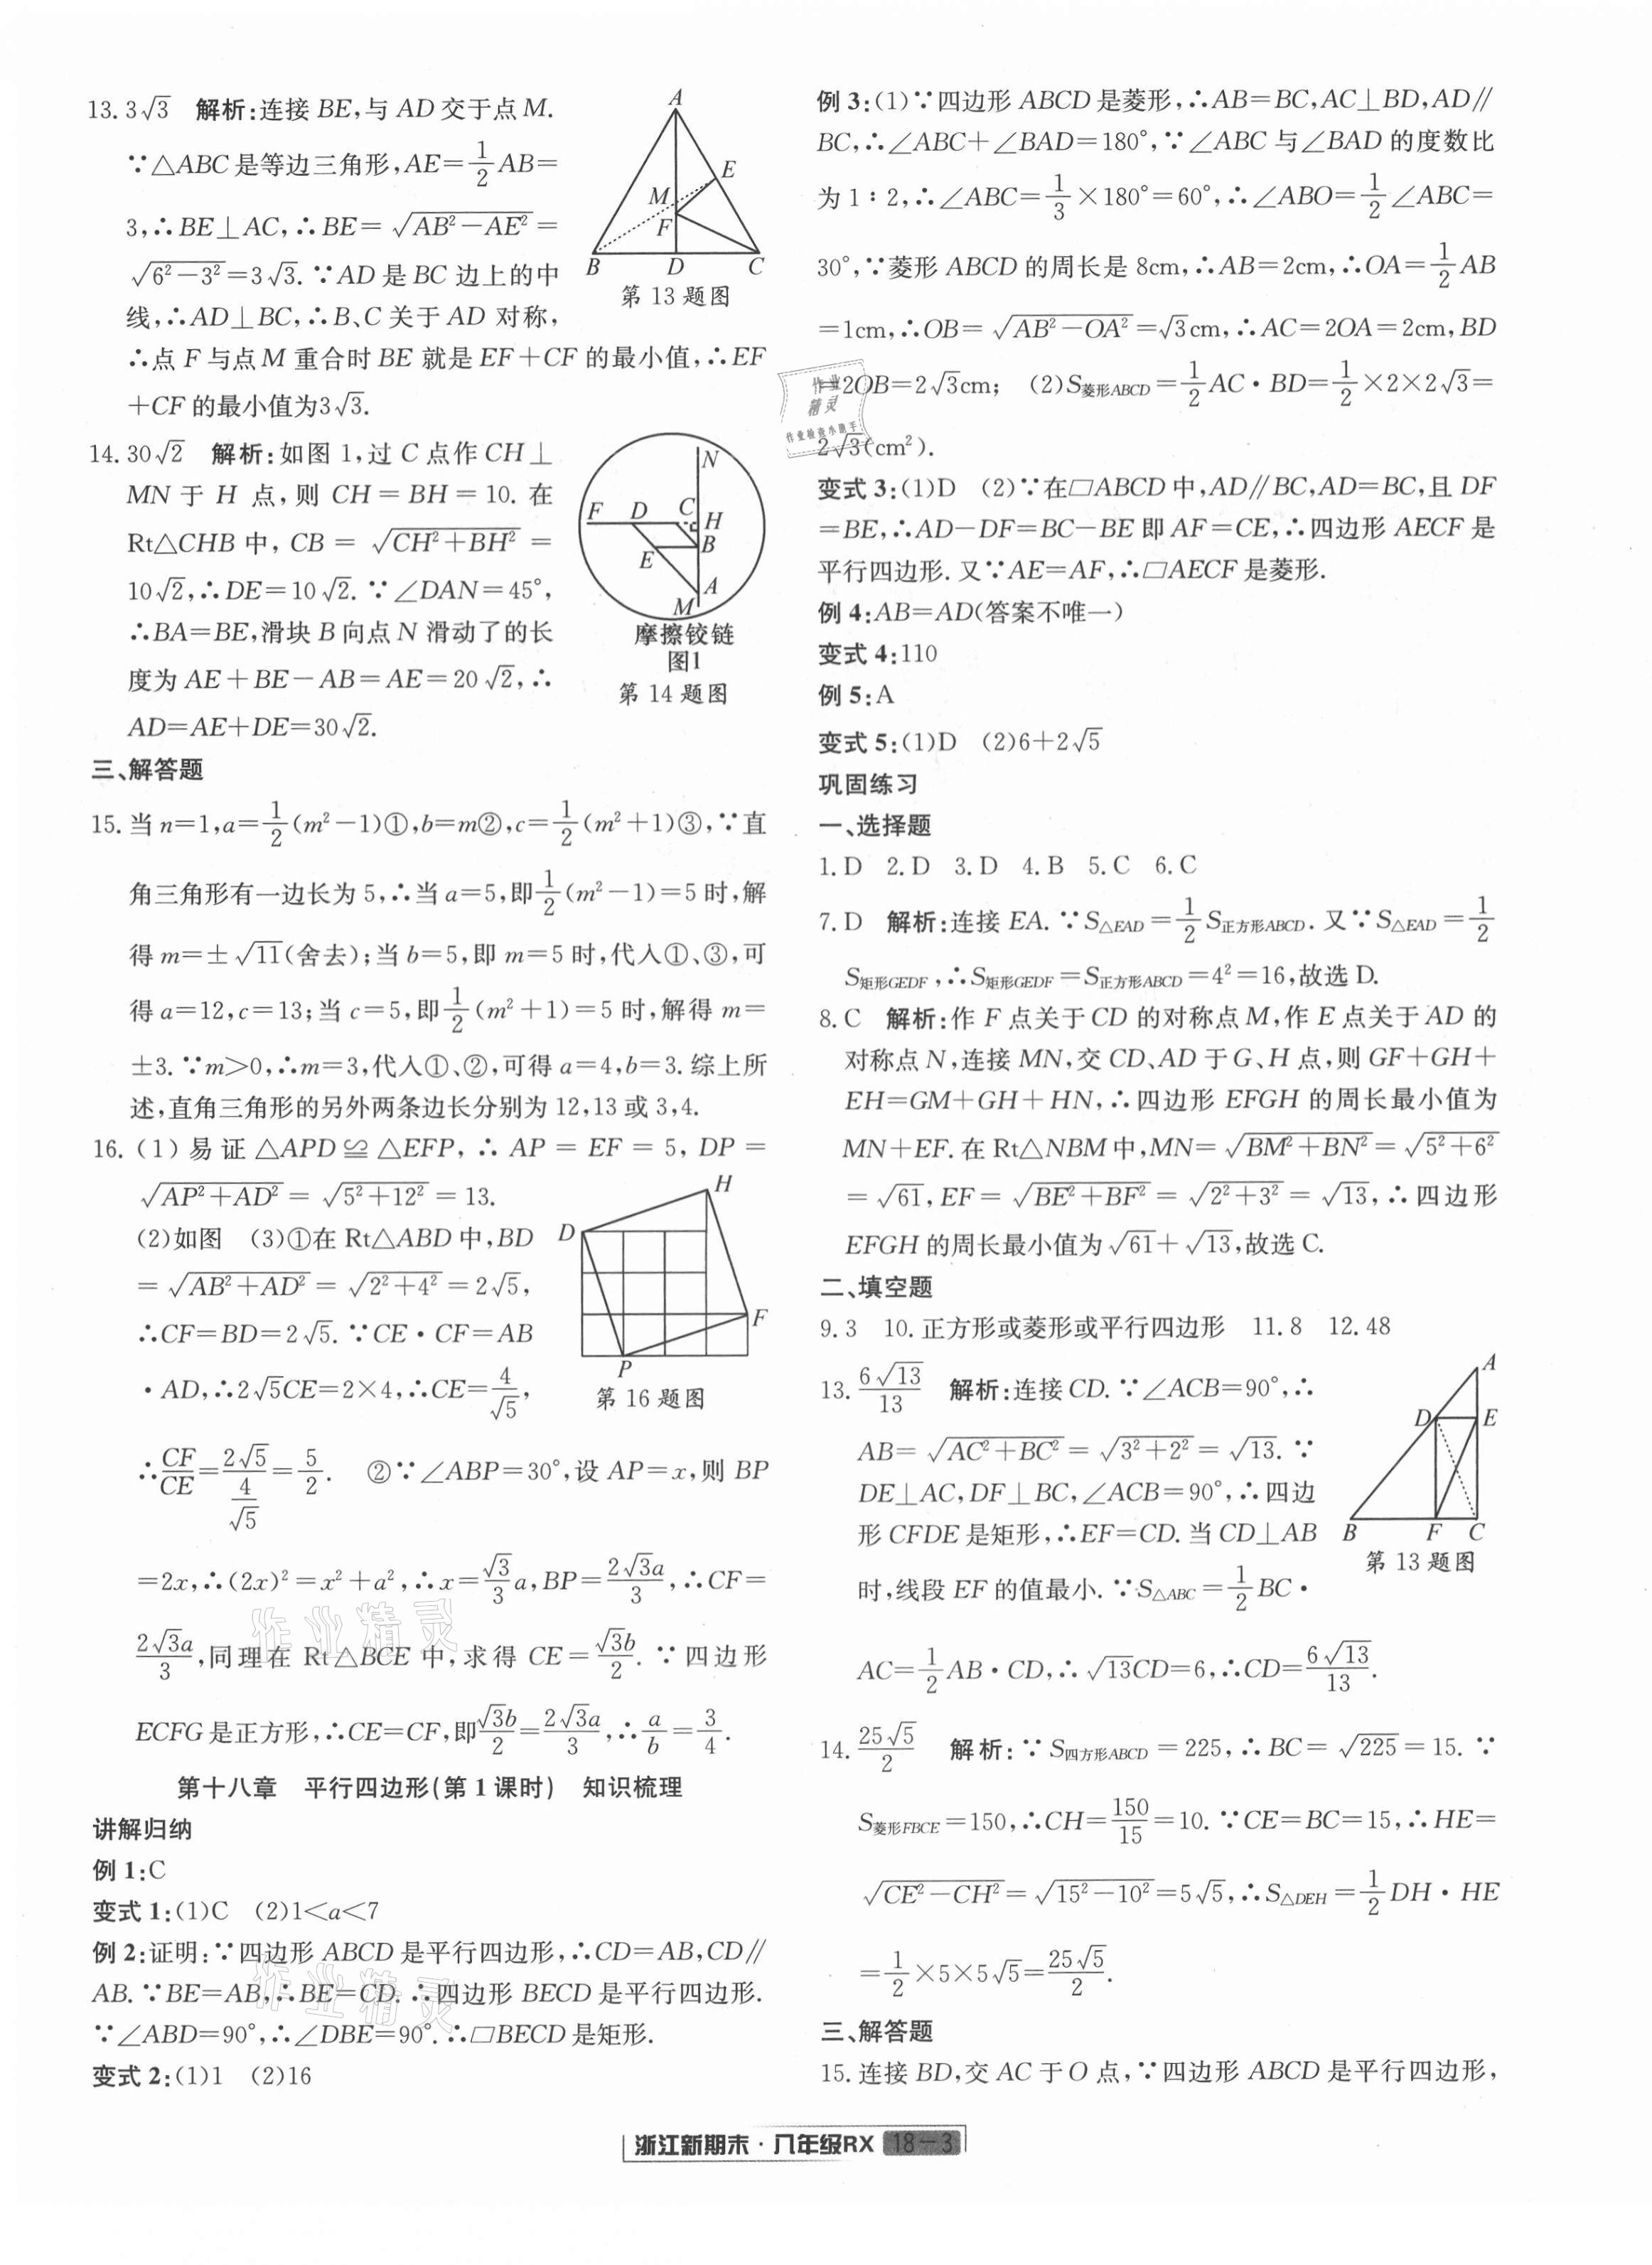 13. 3√3　解析:连接 BE,与 AD 交于点 M.
∵△ABC 是等边三角形,AE=1/2 AB=
3,∴BE⊥AC,∴BE=√(AB²−AE²)=
√(6²−3²)=3√3. ∵AD 是 BC 边上的中
线,∴AD⊥BC,∴B、C 关于 AD 对称,
∴点 F 与点 M 重合时 BE 就是 EF+CF 的最小值,∴EF
+CF 的最小值为3√3.
A
E
M
F
B D C
第 13 题图
14. 30√2　解析:如图 1,过 C 点作 CH⊥
MN 于 H 点,则 CH=BH=10. 在
Rt△CHB 中, CB=√(CH²+BH²)=
10√2,∴DE=10√2. ∵∠DAN=45°,
∴BA=BE,滑块 B 向点 N 滑动了的长
度为 AE+BE−AB=AE=20√2,∴
AD=AE+DE=30√2.
N
F D C H
E B
A
M
摩擦铰链
图1
第 14 题图
三、解答题
15. 当 n=1,a=1/2(m²−1)①,b=m②,c=1/2(m²+1)③,∵直
角三角形有一边长为 5,∴当 a=5,即1/2(m²−1)=5 时,解
得 m=±√11(舍去);当 b=5,即 m=5 时,代入①、③,可
得 a=12,c=13;当 c=5,即1/2(m²+1)=5 时,解得 m=
±3. ∵m>0,∴m=3,代入①、②,可得 a=4,b=3. 综上所
述,直角三角形的另外两条边长分别为 12,13 或 3,4.
16. (1) 易证 △APD≌△EFP, ∴AP=EF=5, DP=
√(AP²+AD²)=√(5²+12²)=13.
(2)如图　(3)①在 Rt△ABD 中,BD
=√(AB²+AD²)=√(2²+4²)=2√5,
∴CF=BD=2√5. ∵CE·CF=AB
·AD,∴2√5CE=2×4,∴CE=4/√5,
H
D
F
P
第 16 题图
∴CF/CE=2√5/(4/√5)=5/2.　②∵∠ABP=30°,设 AP=x,则 BP
=2x,∴(2x)²=x²+a²,∴x=√3/3 a,BP=2√3a/3,∴CF=
2√3a/3,同理在 Rt△BCE 中,求得 CE=√3b/2. ∵四边形
ECFG 是正方形,∴CE=CF,即√3b/2=2√3a/3,∴a/b=3/4.
第十八章　平行四边形(第 1 课时)　知识梳理
讲解归纳
例 1:C
变式 1:(1)C　(2)1<a<7
例 2:证明:∵四边形 ABCD 是平行四边形,∴CD=AB,CD∥
AB. ∵BE=AB,∴BE=CD. ∴四边形 BECD 是平行四边形.
∵∠ABD=90°,∴∠DBE=90°. ∴▱BECD 是矩形.
变式 2:(1)1　(2)16
例 3:(1)∵四边形 ABCD 是菱形,∴AB=BC,AC⊥BD,AD∥
BC,∴∠ABC+∠BAD=180°,∵∠ABC 与∠BAD 的度数比
为 1∶2,∴∠ABC=1/3×180°=60°,∴∠ABO=1/2∠ABC=
30°,∵菱形 ABCD 的周长是 8cm,∴AB=2cm,∴OA=1/2 AB
=1cm,∴OB=√(AB²−OA²)=√3cm,∴AC=2OA=2cm,BD
=2OB=2√3cm;　(2)S菱形ABCD=1/2 AC·BD=1/2×2×2√3=
2√3(cm²).
变式 3:(1)D　(2)∵在▱ABCD 中,AD∥BC,AD=BC,且 DF
=BE,∴AD−DF=BC−BE 即 AF=CE,∴四边形 AECF 是
平行四边形. 又∵AE=AF,∴▱AECF 是菱形.
例 4:AB=AD(答案不唯一)
变式 4:110
例 5:A
变式 5:(1)D　(2)6+2√5
巩固练习
一、选择题
1. D　2. D　3. D　4. B　5. C　6. C
7. D　解析:连接 EA. ∵S△EAD=1/2 S正方形ABCD. 又∵S△EAD=1/2
S矩形GEDF,∴S矩形GEDF=S正方形ABCD=4²=16,故选 D.
8. C　解析:作 F 点关于 CD 的对称点 M,作 E 点关于 AD 的
对称点 N,连接 MN,交 CD、AD 于 G、H 点,则 GF+GH+
EH=GM+GH+HN,∴四边形 EFGH 的周长最小值为
MN+EF. 在 Rt△NBM 中,MN=√(BM²+BN²)=√(5²+6²)
=√61,EF=√(BE²+BF²)=√(2²+3²)=√13,∴四边形
EFGH 的周长最小值为√61+√13,故选 C.
二、填空题
9. 3　10. 正方形或菱形或平行四边形　11. 8　12. 48
13. 6√13/13　解析:连接 CD. ∵∠ACB=90°,∴
AB=√(AC²+BC²)=√(3²+2²)=√13. ∵
DE⊥AC,DF⊥BC,∠ACB=90°,∴四边
形 CFDE 是矩形,∴EF=CD. 当 CD⊥AB
时,线段 EF 的值最小. ∵S△ABC=1/2 BC·
AC=1/2 AB·CD,∴√13CD=6,∴CD=6√13/13.
A
D E
B F C
第 13 题图
14. 25√5/2　解析:∵S四方形ABCD=225,∴BC=√225=15. ∵
S菱形FBCE=150,∴CH=150/15=10. ∵CE=BC=15,∴HE=
√(CE²−CH²)=√(15²−10²)=5√5,∴S△DEH=1/2 DH·HE
=1/2×5×5√5=25√5/2.
三、解答题
15. 连接 BD,交 AC 于 O 点,∵四边形 ABCD 是平行四边形,
浙江新期末·八年级RX 18−3
作业
精灵
作业检查小助手
作业精灵
作业精灵